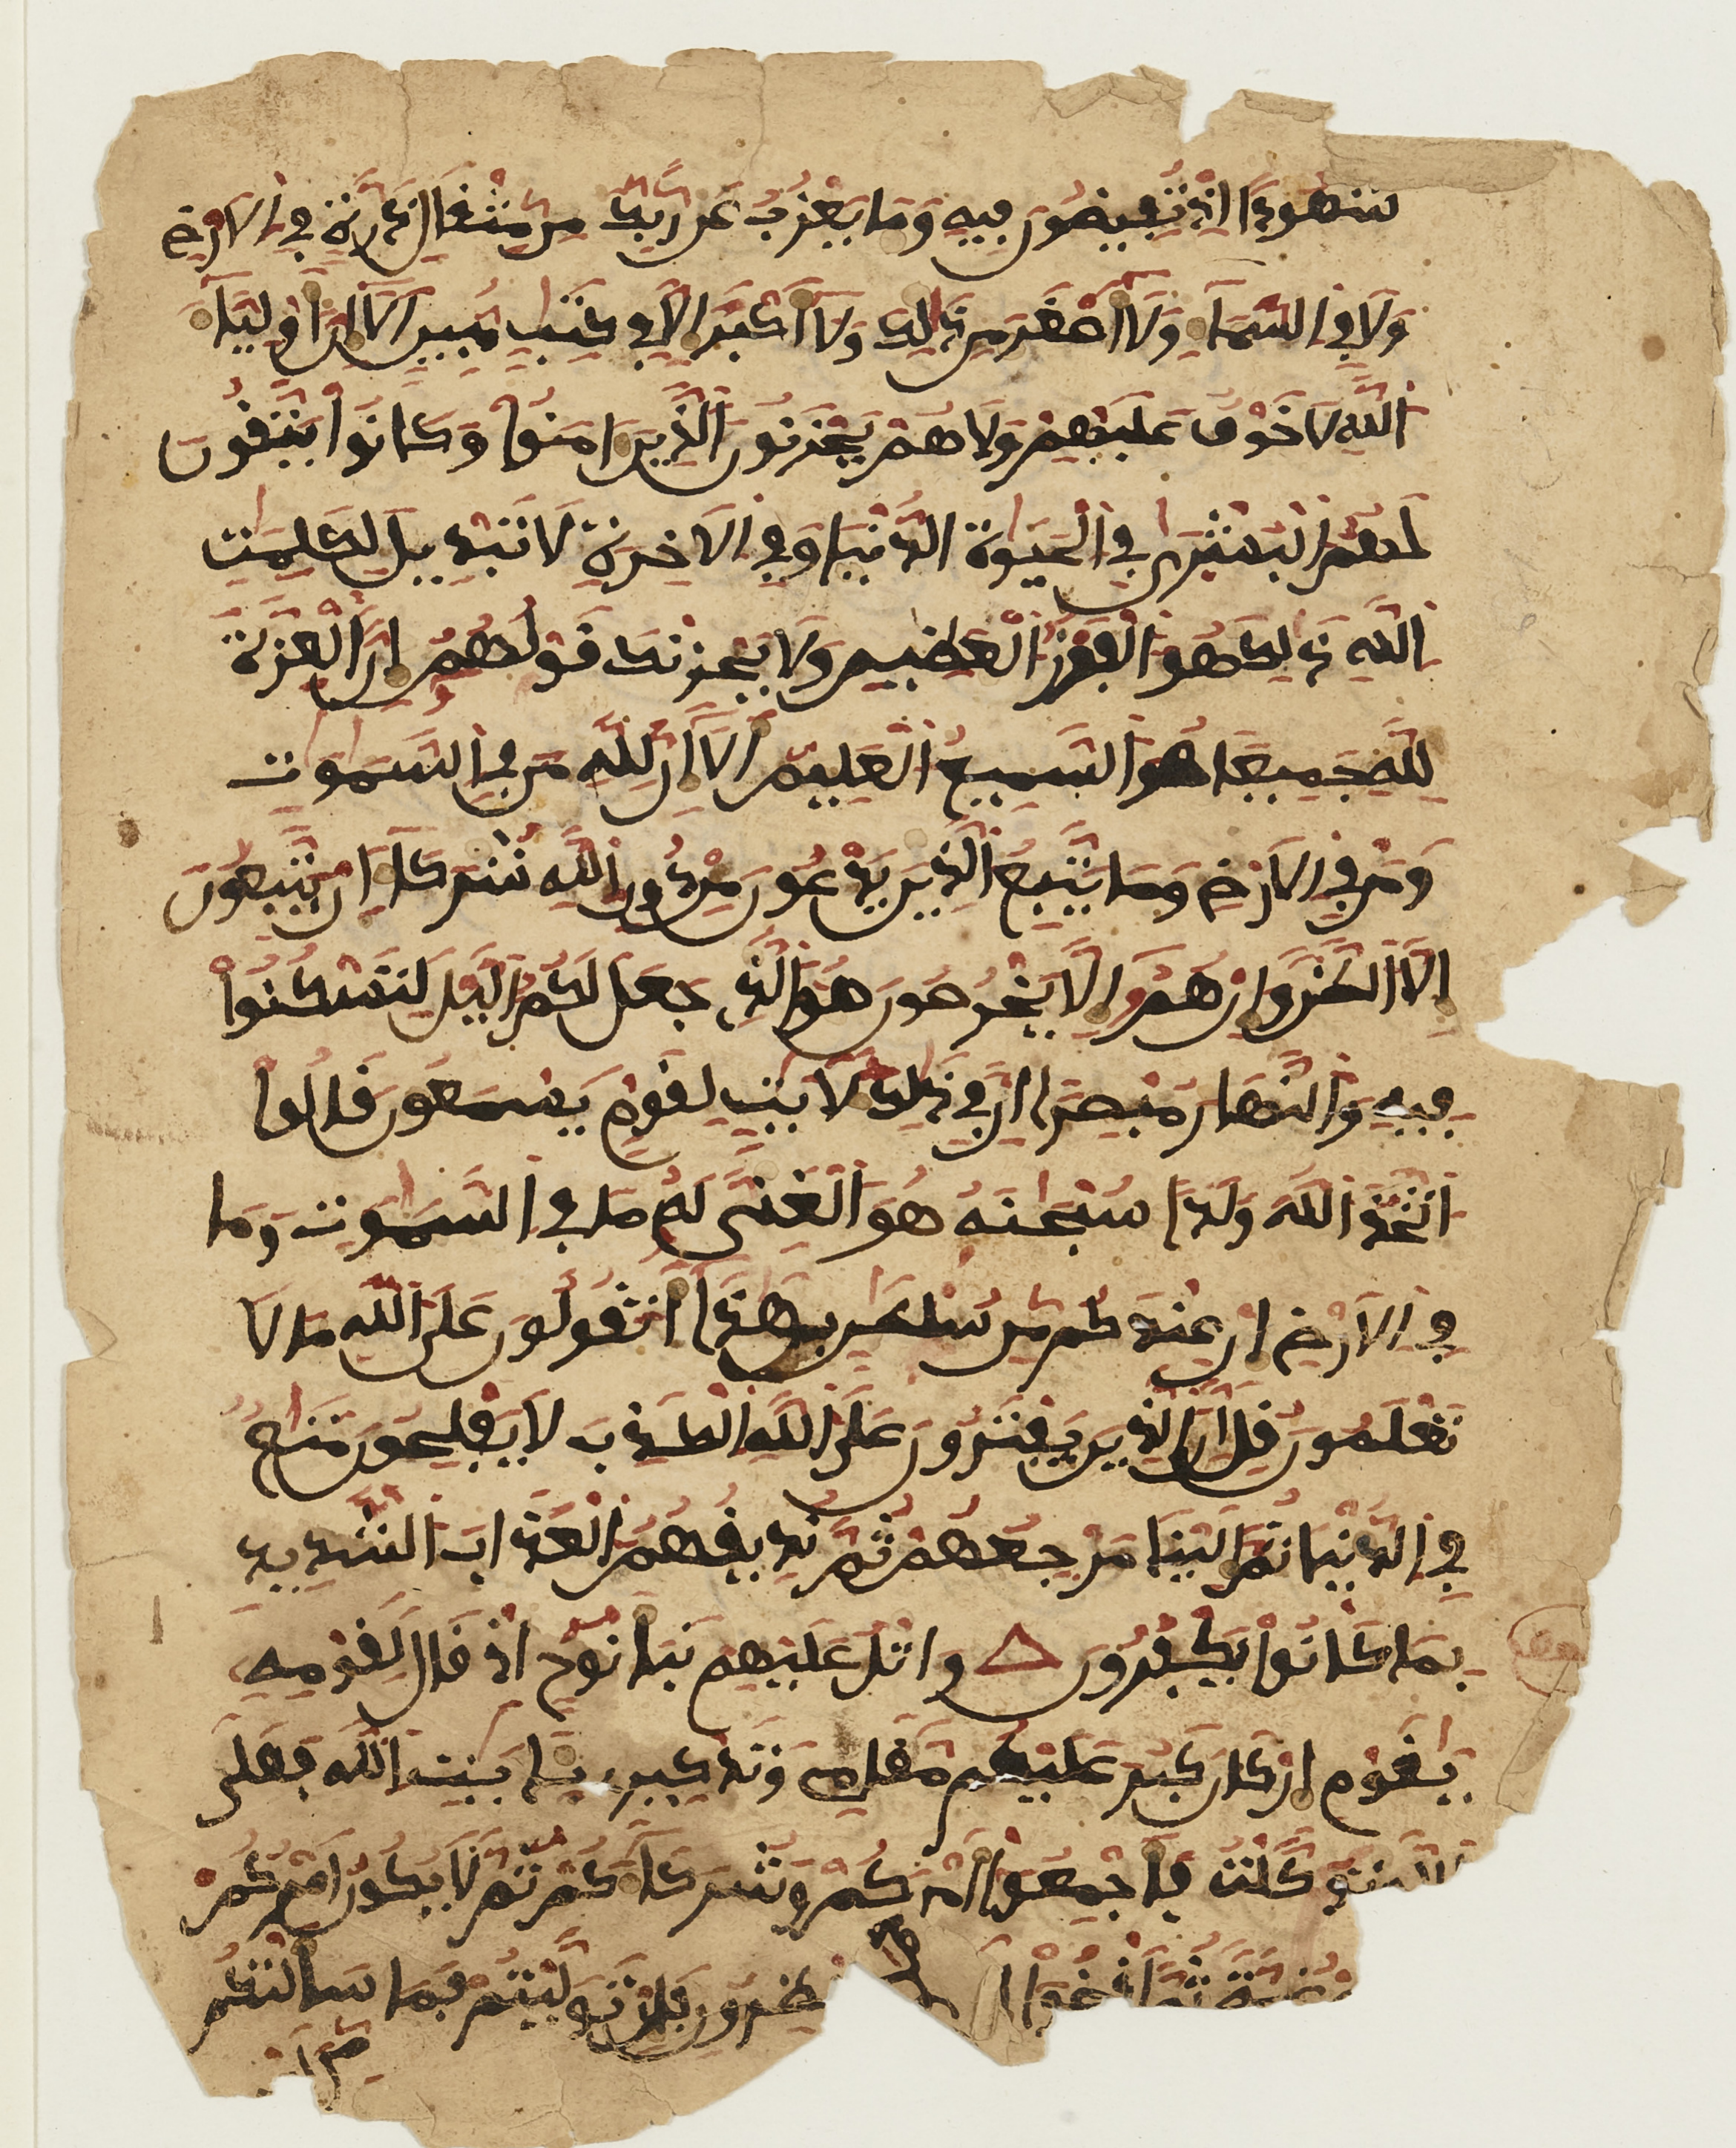 شهودا اذ تفيضون فيه وما يعزب عن ربك من مثفال ذرة في الارض
ولا في السماء ولا أصغر من ذلك ولا أكبر الا في كتب مبين الا ان أولياء
الله لا خوف عليهم ولا هم يحزنون الذين امنوا وكانوا يتفون
لهم البشرى في الحيوة الدنيا وفي الاخرة لا تبديل لكلمت
الله ذلك هو الفوز العظيم ولا يحزنك فولهم ان العزة
لله جميعا هو السميع العليم الا ان لله من في السموت
ومن في الارض وما يتبع الذين يدعون من دون الله شركاء ان يتبعون
الا الظن وان هم الا يخرصون هو الذي جعل لكم اليل لتسكنوا
فيه والنهار مبصرا ان في ذلك لايت لفوم يسمعون فالوا
اتخذ الله ولدا سبحنه هو الغني له ما في السموت وما
في الارض ان عندكم من سلطن بهذا أتفولون على الله ما لا
تعلمون فل ان الذين يفترون على الله الكذب لا يفلحون متع
في الدنيا ثم الينا مرجعهم ثم نذيفهم العذاب الشديد
بما كانوا يكفرون واتل عليهم نبأ نوح اذ فال لفومه
يفوم ان كان كبر عليكم مفامي وتذكيري بايت الله فعلى
الله توكلت فأجمعوا أمركم وشركاءكم ثم لا يكن أمركم
عليكم غمة ثم افضوا الي ولا تنظرون فان توليتم فما سألتكم
من ا